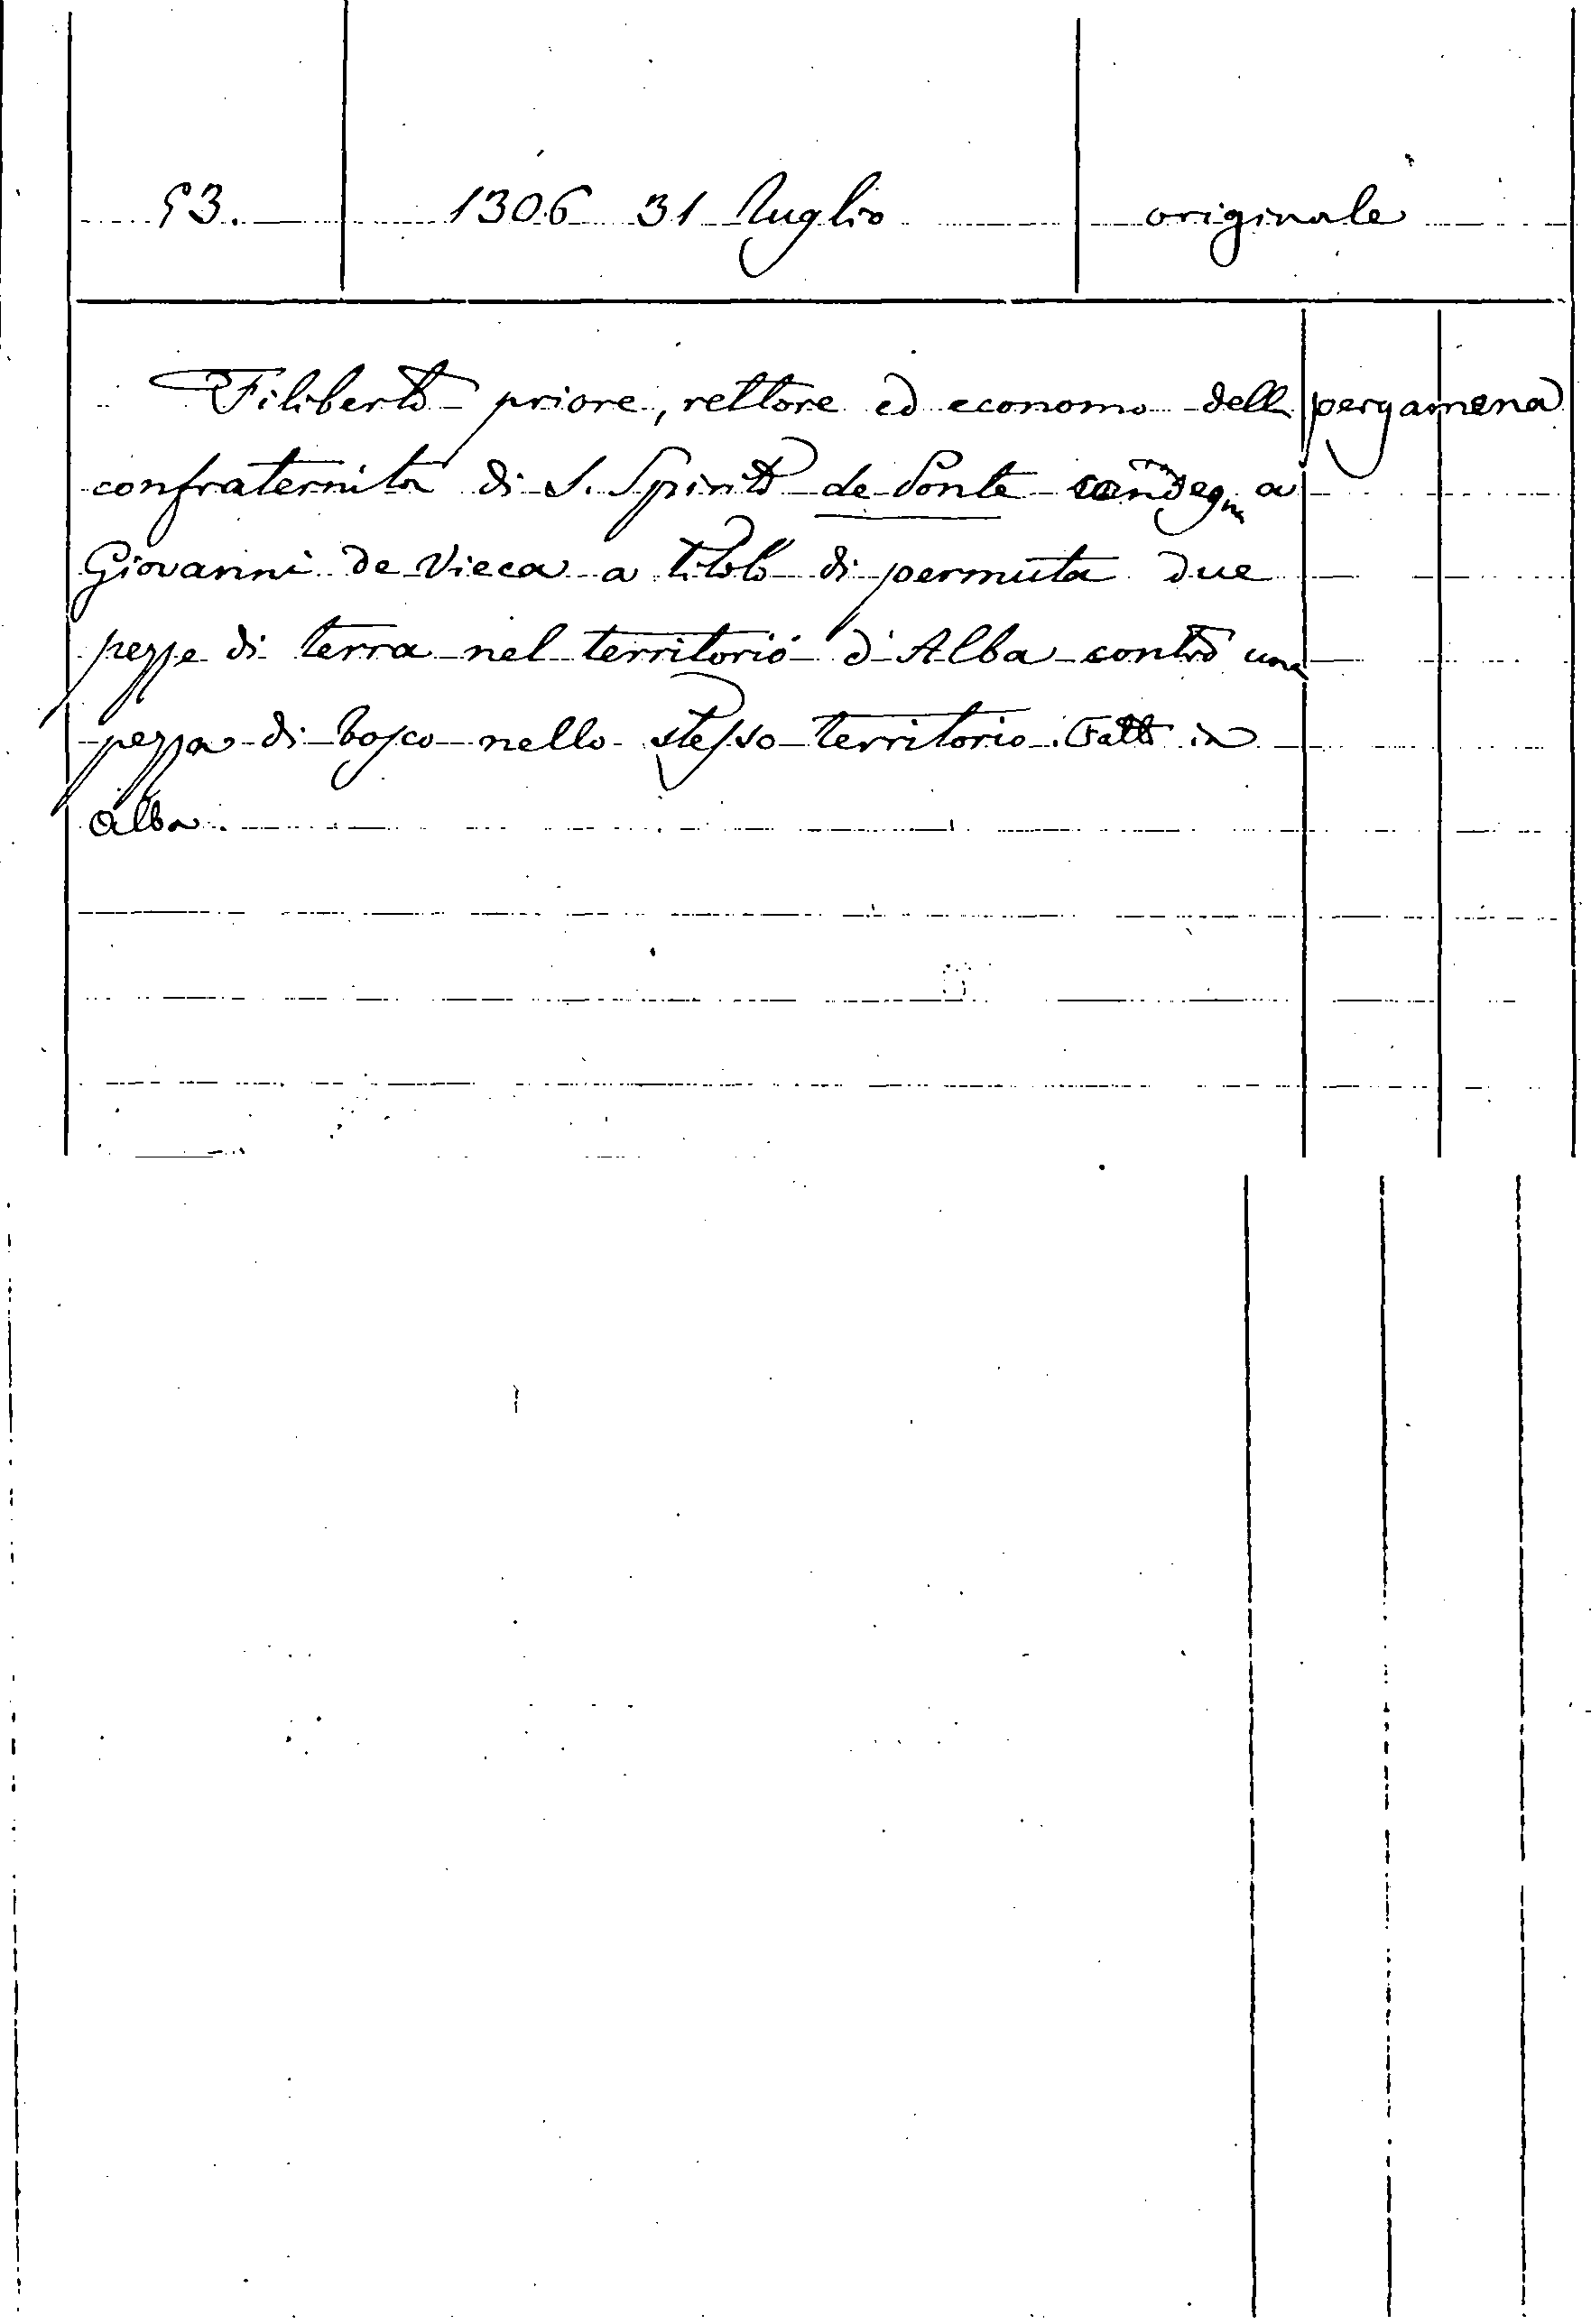 53. 1306 31 luglio originale
Filiberto priore, rettore ed economo della pergamena
confraternita di S. Spirito de Ponte consegna a
Giovanni de Vieca a titolo di permuta due
pezze di terra nel territorio d'Alba contro una
pezza di bosco nello stesso territorio. Fatto in
Alba.